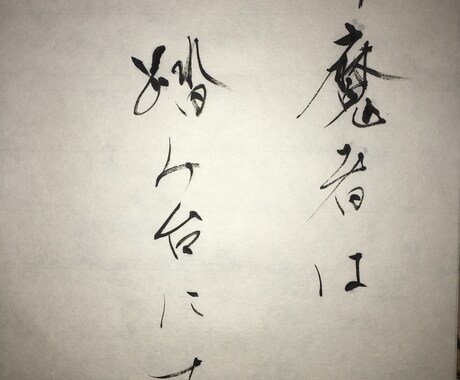 魔者は
踏み台にす